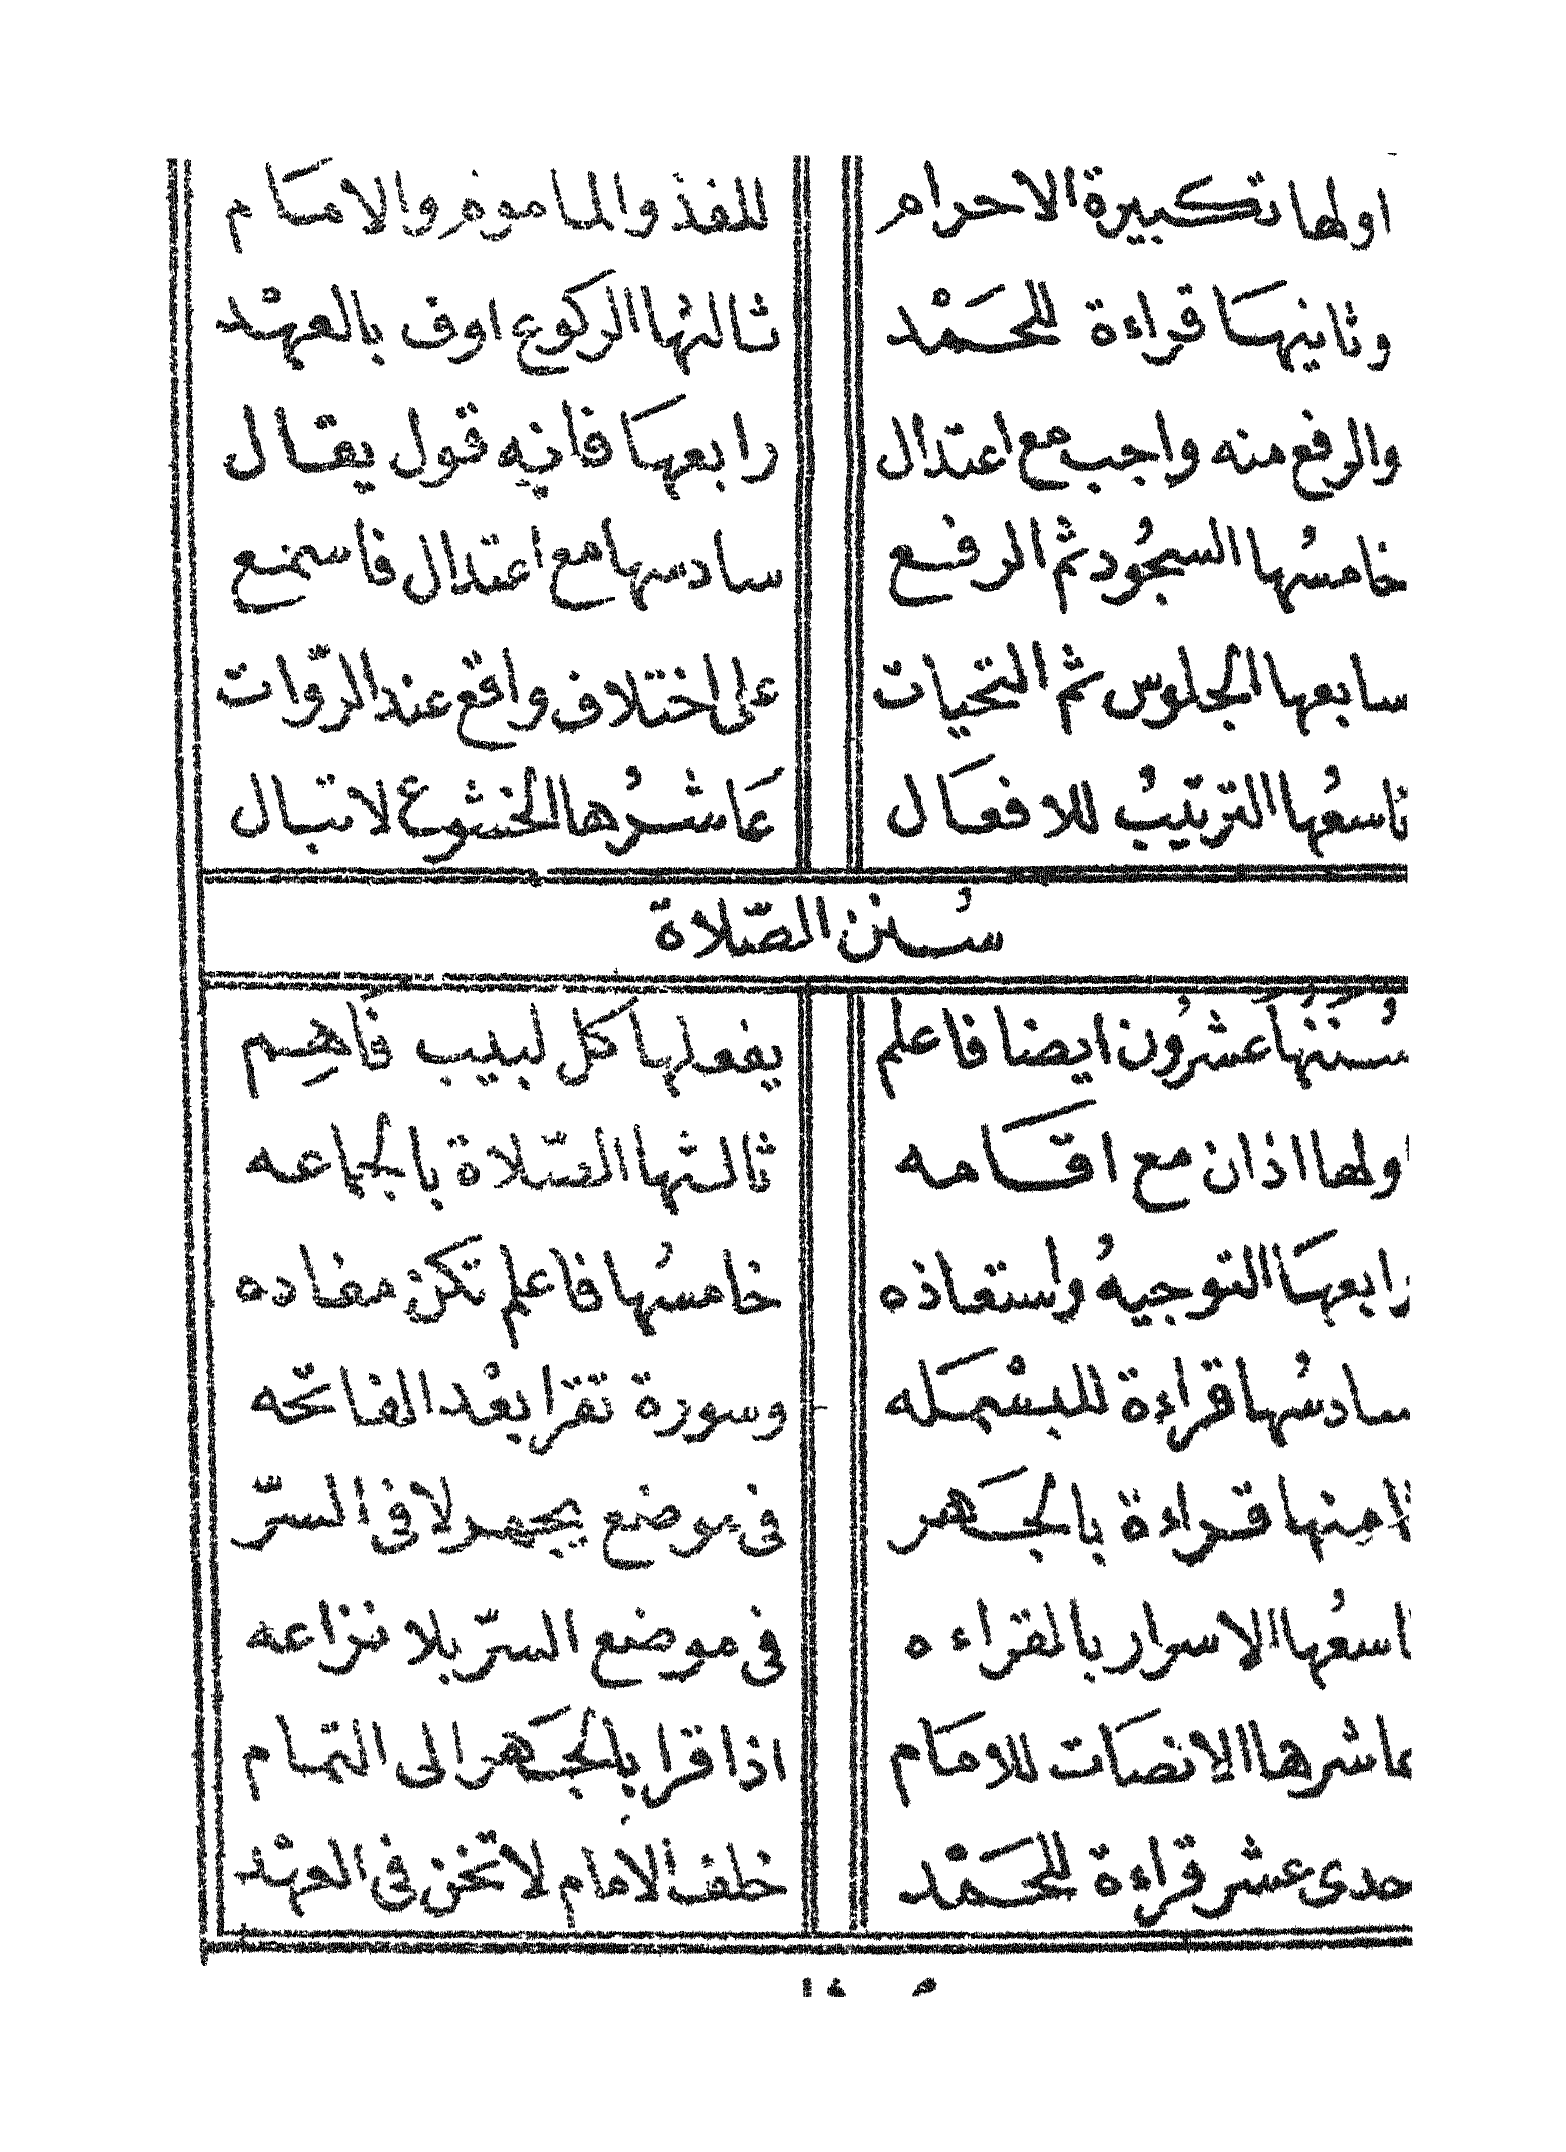 اولها تكبيرة الاحرام للفذ والماموم والامام
وثانيهَا قراءة للحَمْد ثالثها الركوع اوف بالعهْد
والرفع منه واجب مع اعتدال رابعهَا فانه قول يقال
خامسُها السجُود ثم الرفع سادسها مع اعتدال فاسمع
سابعها الجلوس ثم التحيات على اختلاف واقع عند الروّات
تاسعُها الترتيبُ للافعَال عَاشرُها الخشوع لاتبال
سُنن الصّلاة
سُننُهَا عشرُون ايضا فاعلم يفعلها كل لبيب فَاهِم
اولها اذان مع اقَامه ثالثها الصّلاة بالجماعه
رابعهَا التوجيهُ واستعاذه خامسُها فاعلم تكن مفاده
سادسُها قراءة للبسْمَله وسورة تقرا بعْد الفاتحه
ثامنِها قراءة بالجَهر فى موضع يجهر لا فى السرّ
تاسعُها الاسرار بالقراءه فى موضع السرّ بلا نزاعه
عاشرها الانصَات للامَام اذا قرا بالجَهر الى التمام
حدى عشر قراءة للحَمْد خلف الامام لا تخن فى العهْد